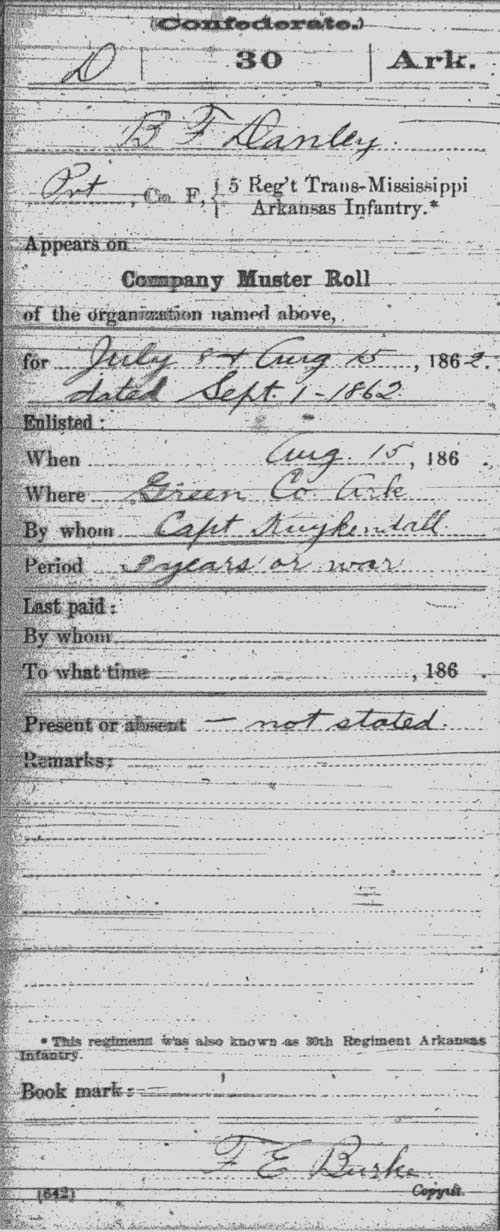 (Confederate.)
D | 30 | Ark.
B F Danley.
Pvt, Co F, { 5 Reg't Trans-Mississippi
Arkansas Infantry.*
Appears on
Company Muster Roll
of the organization named above,
for July & Aug 15, 1862.
dated Sept. 1-1862
Enlisted:
When Aug. 15, 186 .
Where Green Co Ark
By whom Capt Kuykendall
Period 3 years or war
Last paid:
By whom
To what time , 186 .
Present or absent — not stated.
Remarks:
* This regiment was also known as 30th Regiment Arkansas
Infantry.
Book mark:
F E Burke
(642) Copyist.